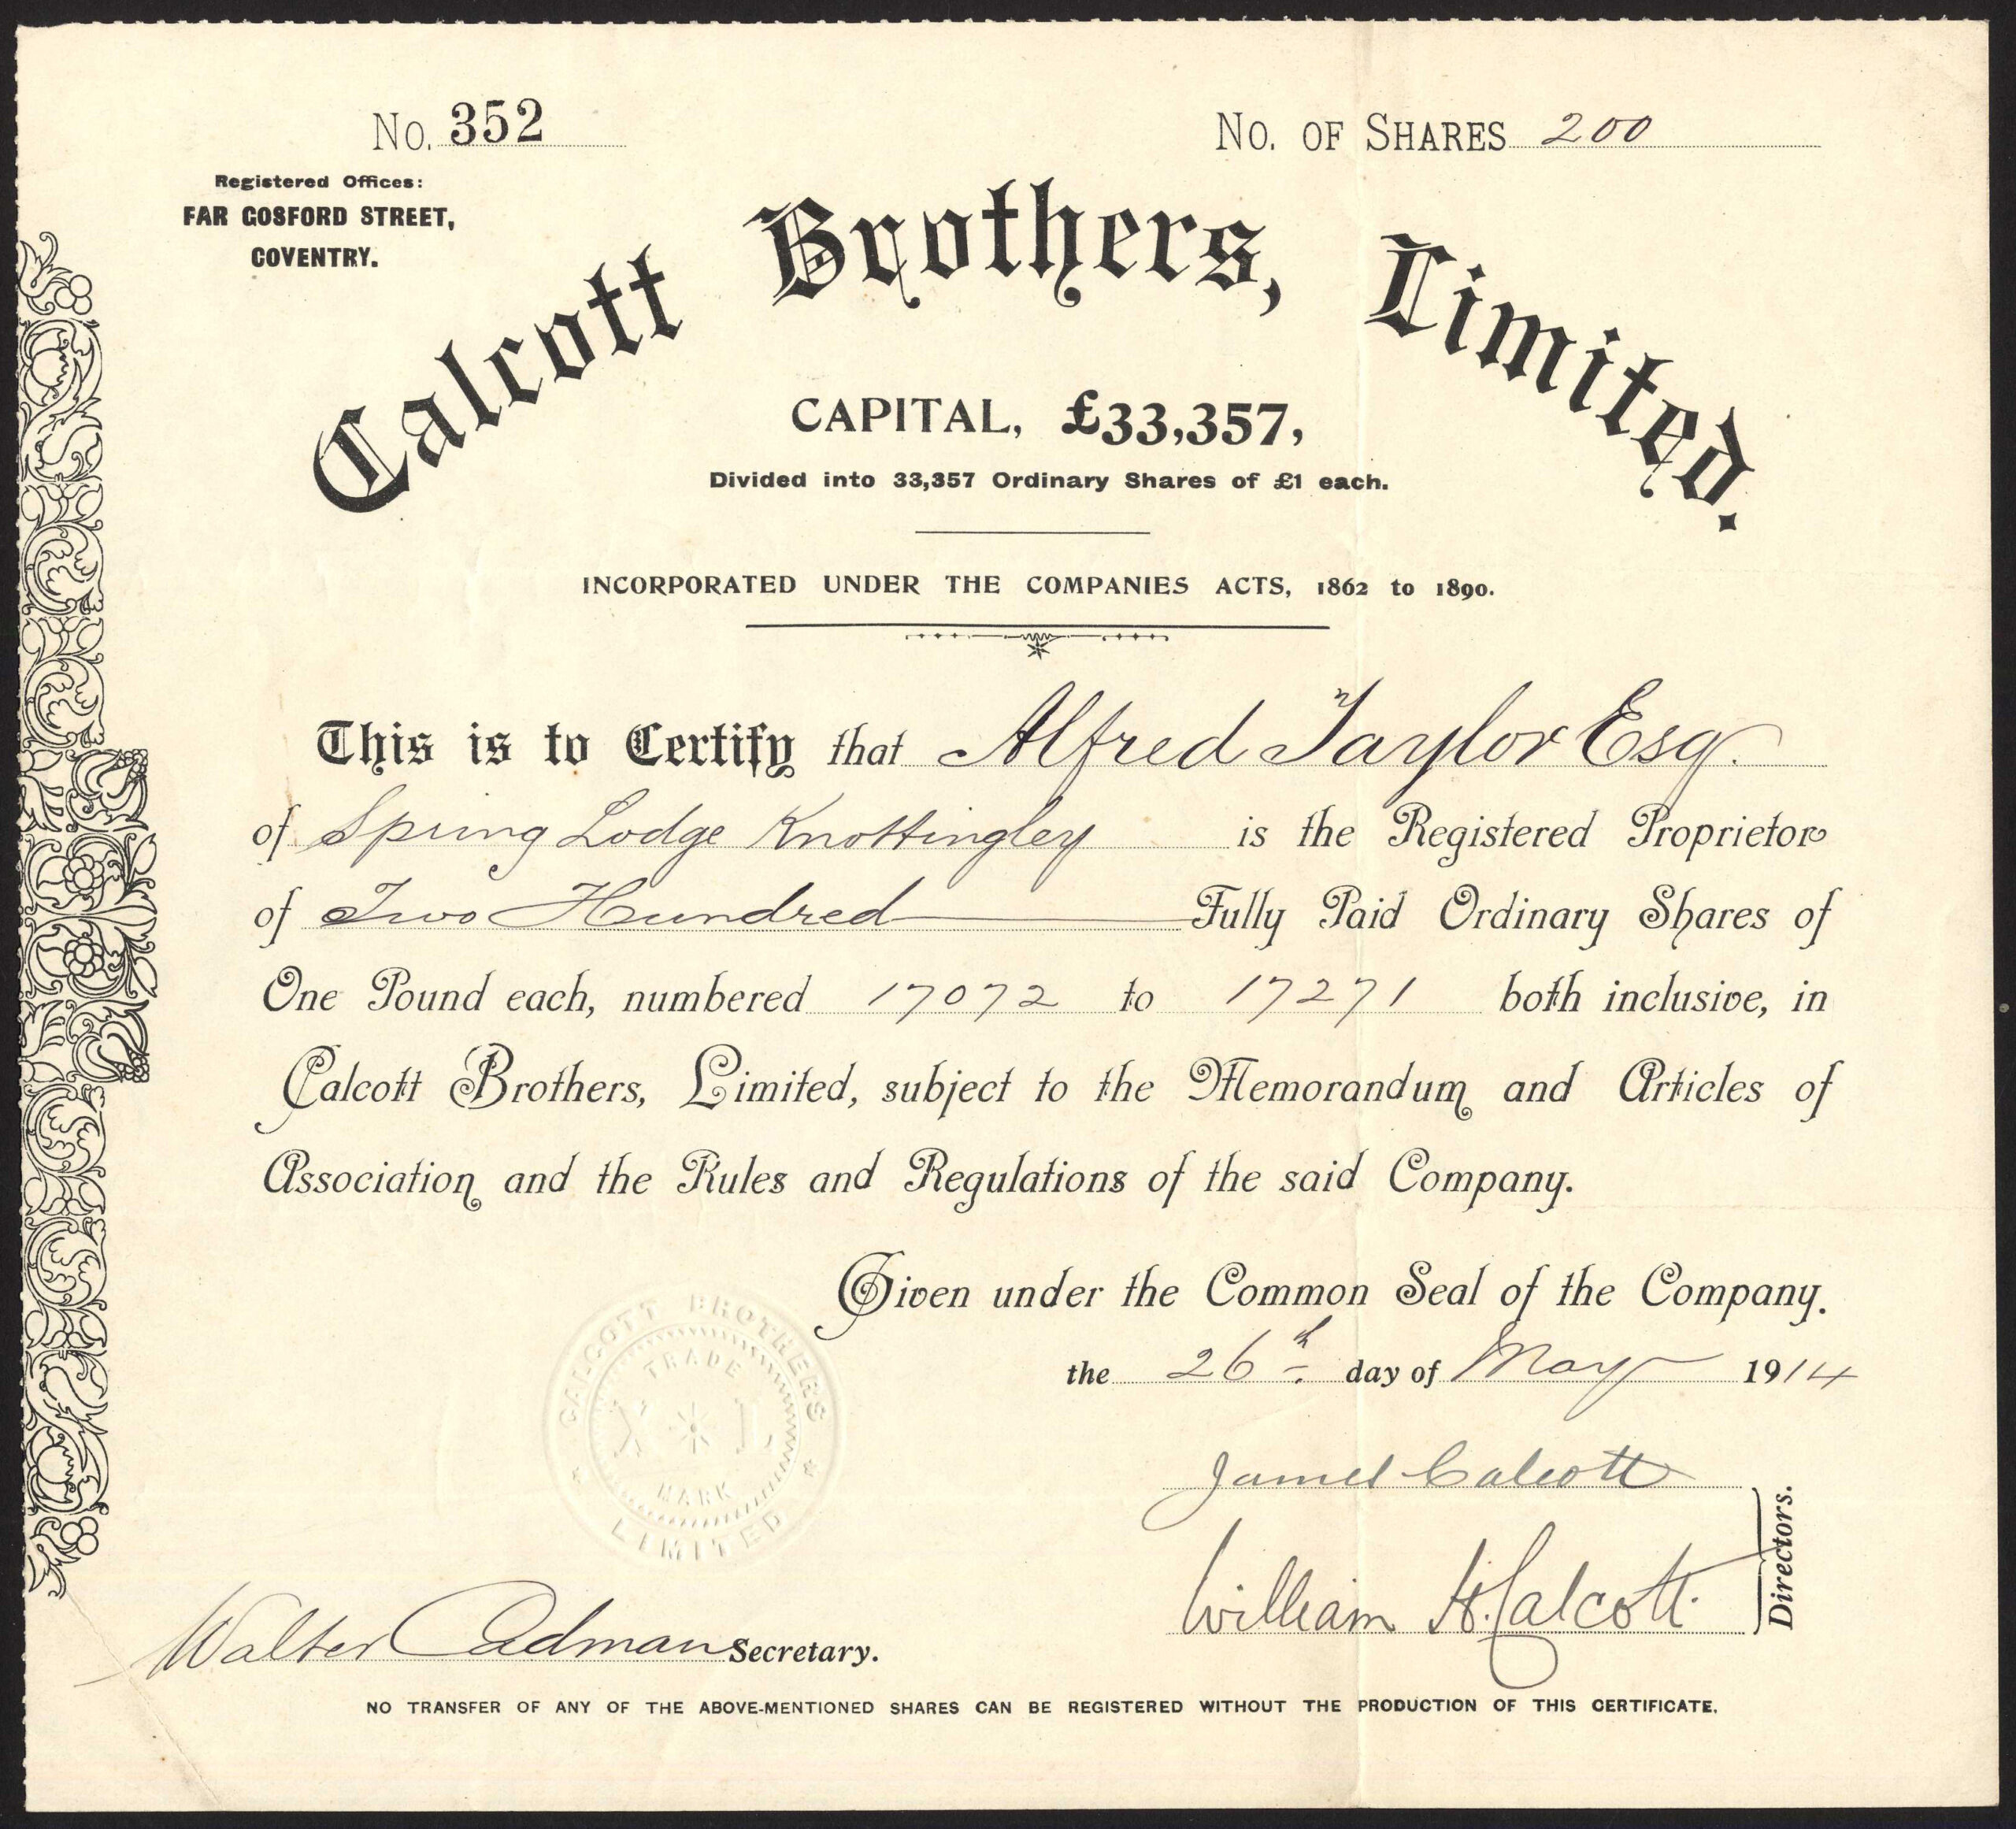 No. 352
No. of Shares 200
Registered Offices:
FAR GOSFORD STREET,
COVENTRY.
Calcott Brothers, Limited.
CAPITAL, £33,357,
Divided into 33,357 Ordinary Shares of £1 each.
INCORPORATED UNDER THE COMPANIES ACTS, 1862 to 1890.
This is to Certify that Alfred Taylor Esq.
of Spring Lodge Knottingley is the Registered Proprietor
of Two Hundred Fully Paid Ordinary Shares of
One Pound each, numbered 17072 to 17271 both inclusive, in
Calcott Brothers, Limited, subject to the Memorandum and Articles of
Association and the Rules and Regulations of the said Company.
Given under the Common Seal of the Company.
the 26th day of May 1914
CALCOTT BROTHERS
TRADE
X L
MARK
LIMITED
James Calcott
William H. Calcott.
Directors.
Walter Cadman Secretary.
NO TRANSFER OF ANY OF THE ABOVE-MENTIONED SHARES CAN BE REGISTERED WITHOUT THE PRODUCTION OF THIS CERTIFICATE.